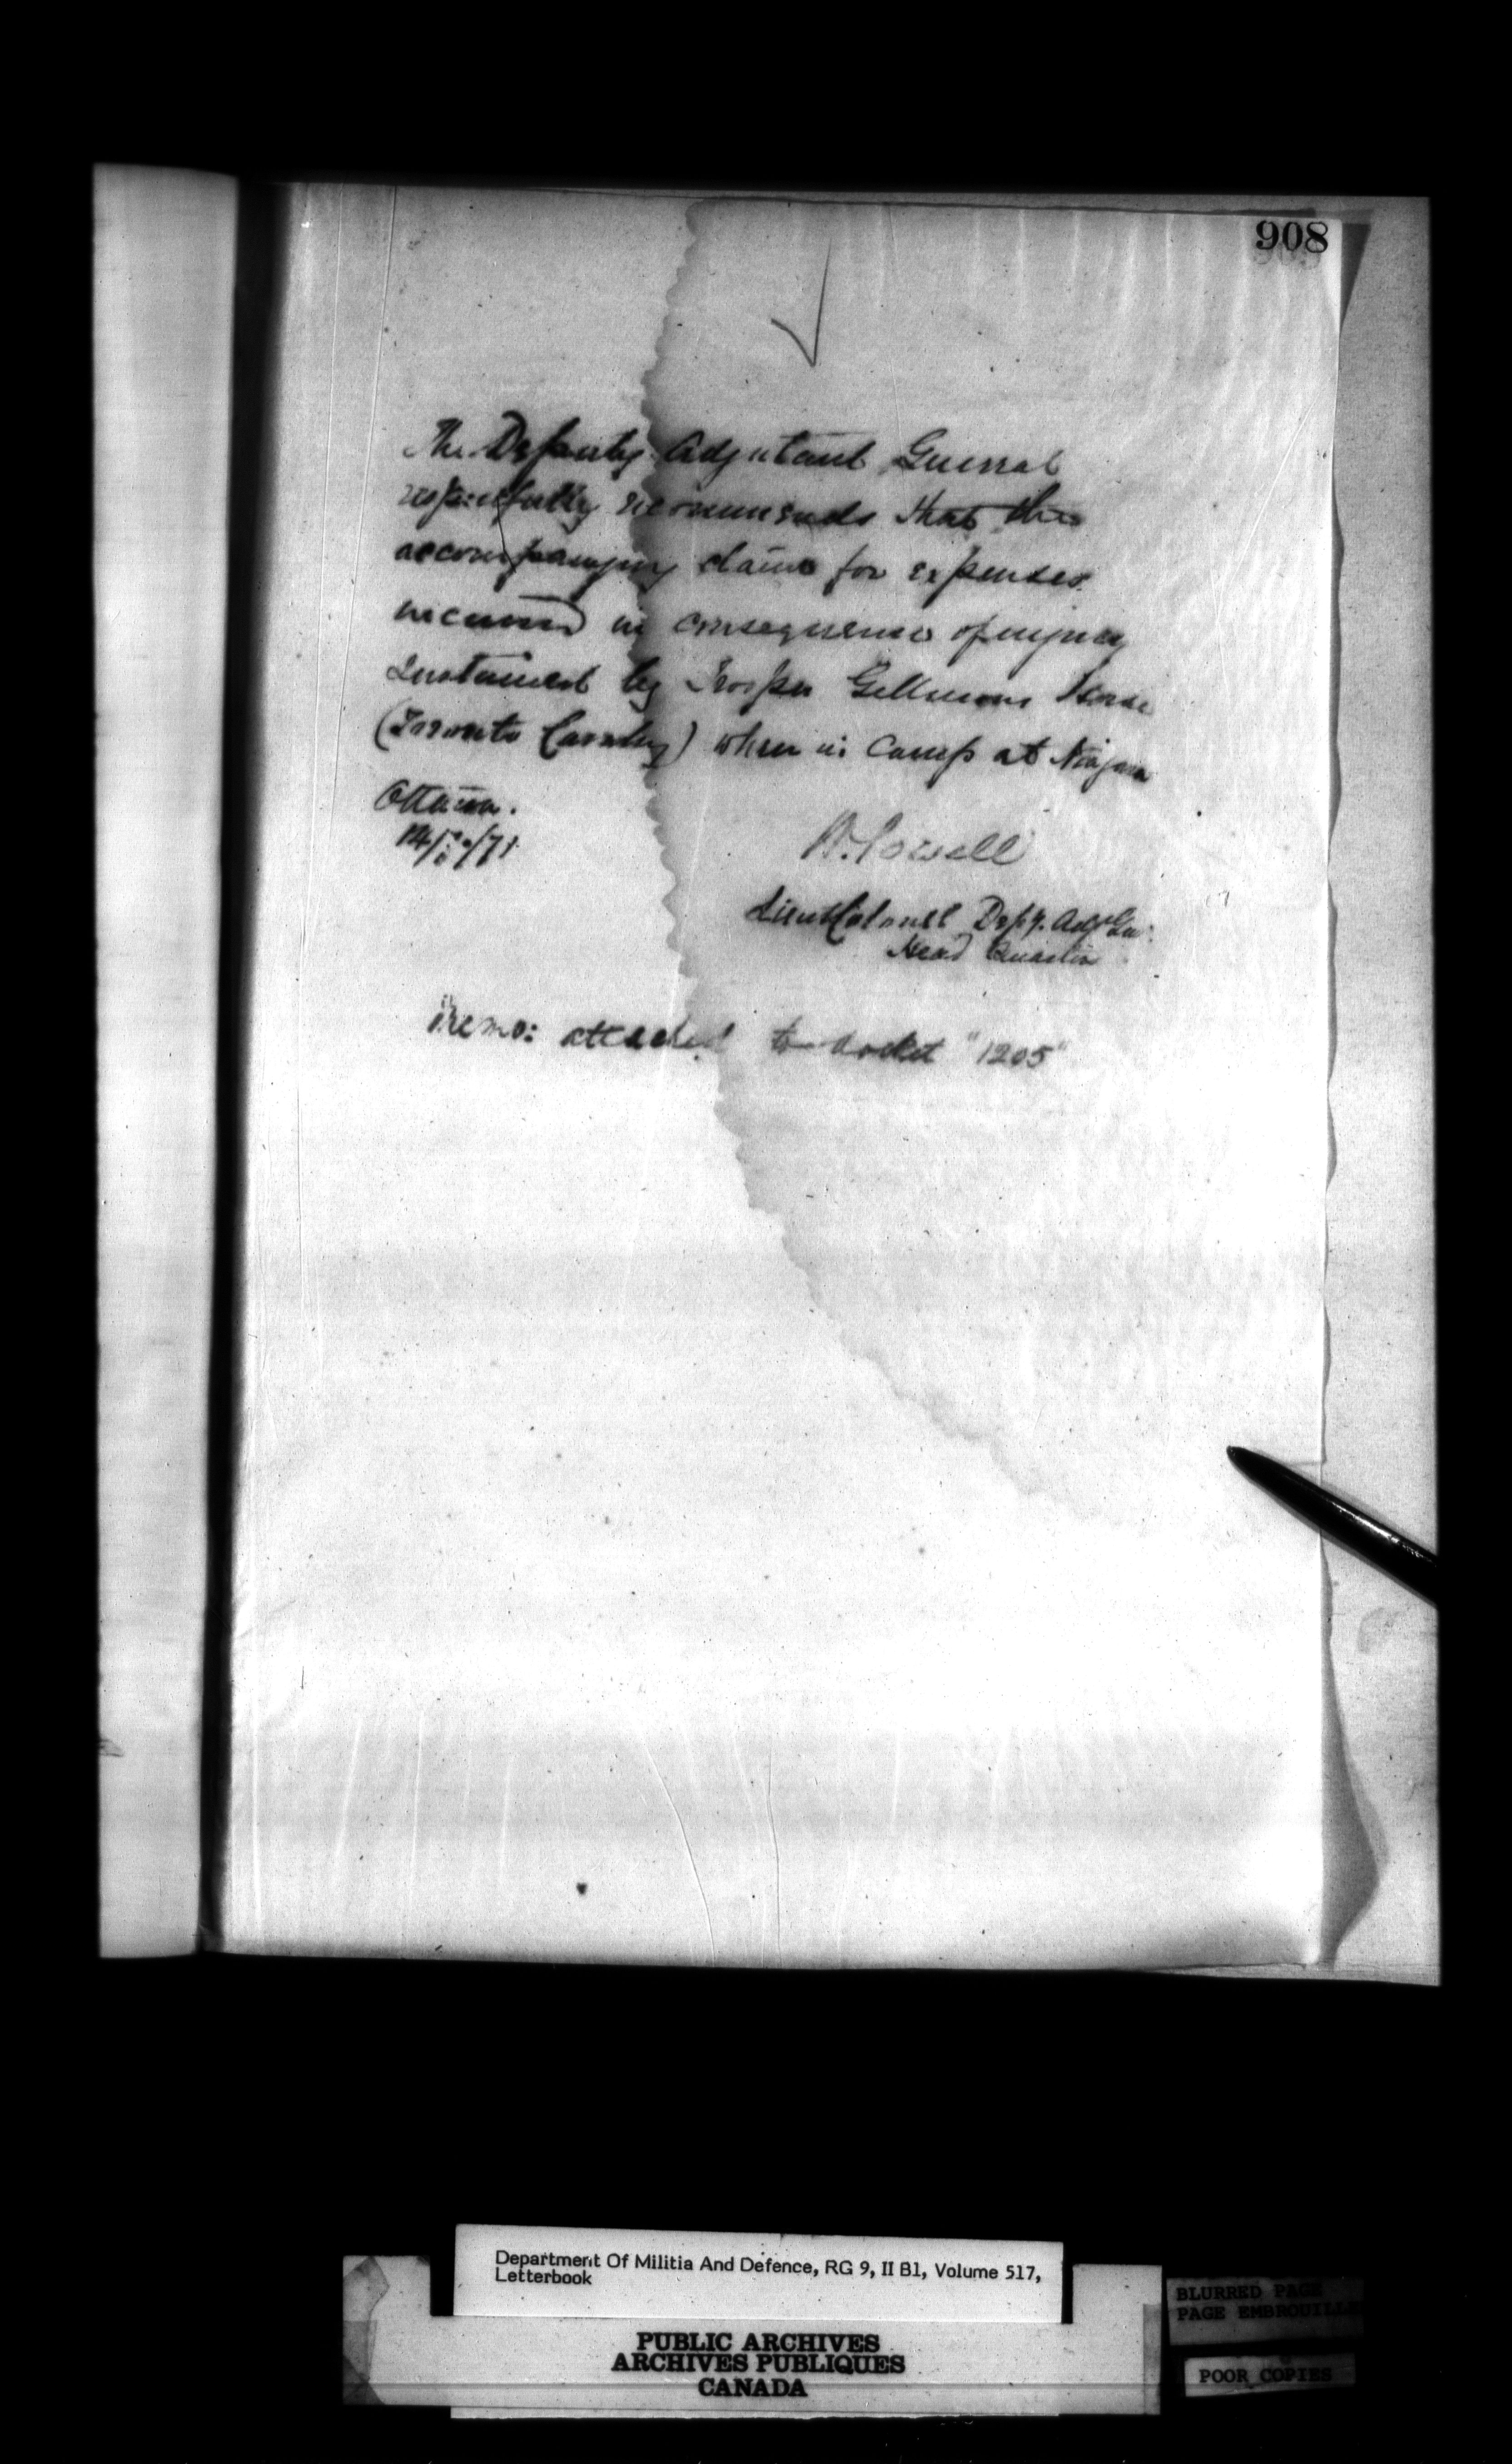 908
The Deputy Adjutant General
respectfully recommends that the
accompanying claim for expenses
incurred in consequence of injury
sustained by Trooper Horse
(Toronto Cavalry) when in Camp at Niagara
Ottawa.
14/10/71
W. Powell
Lieut Colonel Depy. Adjt Gen.
Head Quarters
Memo: attached to docket "1205"
Department Of Militia And Defence, RG 9, II B1, Volume 517,
Letterbook
PUBLIC ARCHIVES
ARCHIVES PUBLIQUES
CANADA
BLURRED PAGE
PAGE EMBROUILLE
POOR COPIES